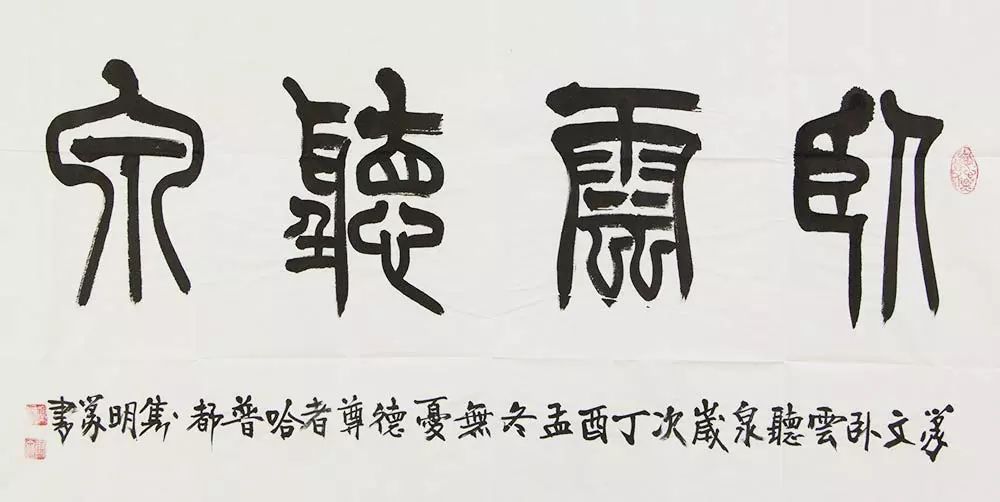 臥雲聽泉
篆文卧雲聽泉歲次丁酉孟冬無憂德尊者哈普都·隽明篆書